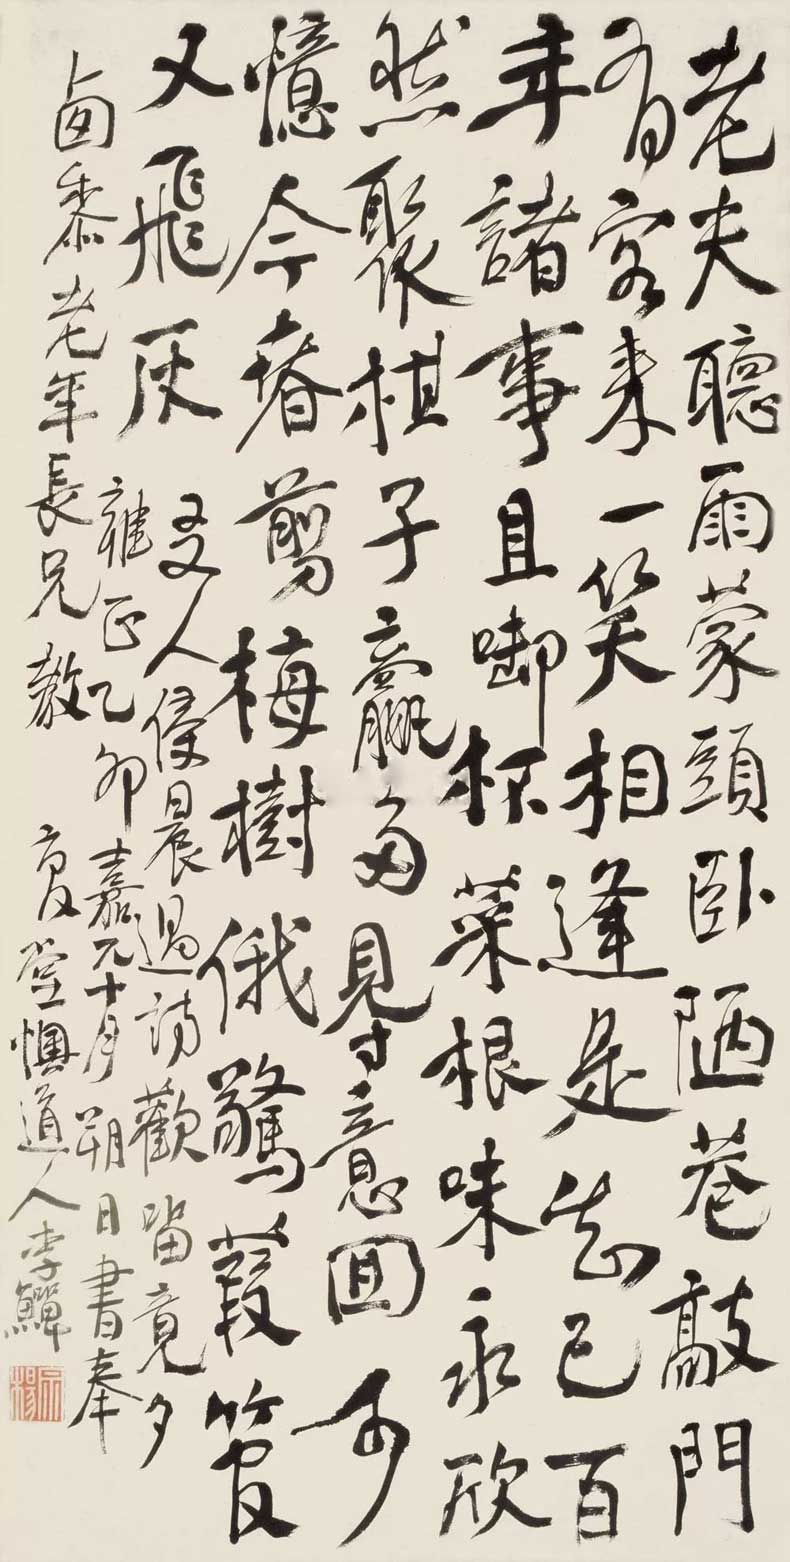 老夫聽雨蒙頭臥陋巷敲門
有客來一笑相逢是知己百
年諸事且啣杯菜根味永欣
然聚棋子贏多㝵意回可
憶今春剪梅樹俄驚葭管
又飛灰 友人侵晨過訪歡留竟夕
雍正乙卯嘉元十月朔日書奉
黍老年長兄教 復堂懊道人李鱓